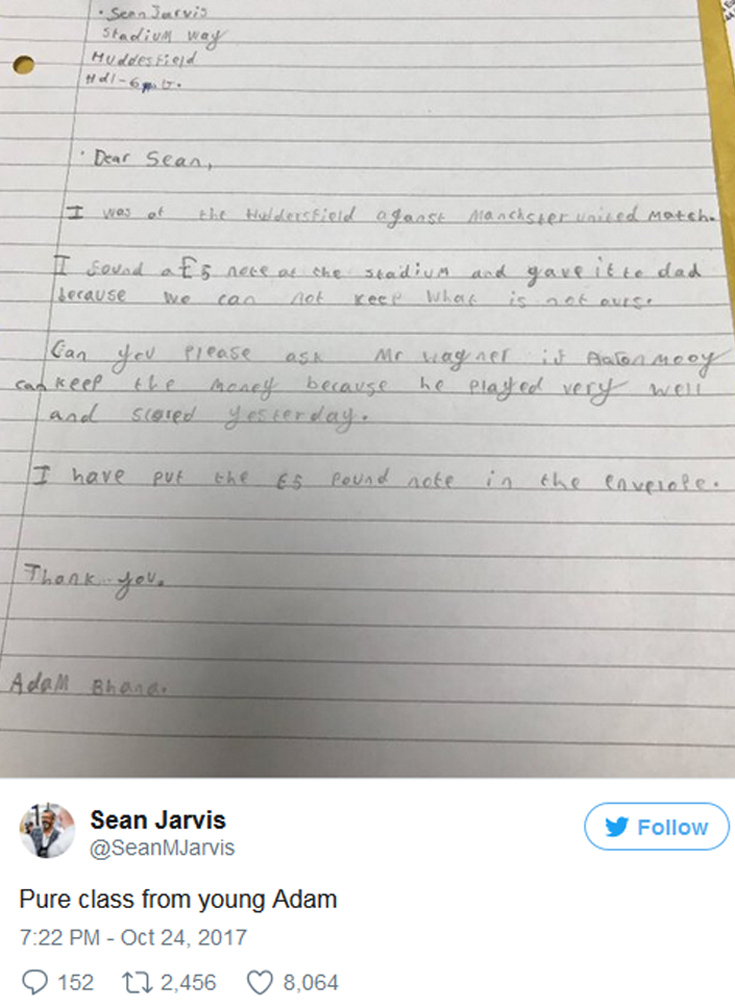 Sean Jarvis
Stadium way
Huddesfield
Dear Sean,
I was at the Huddersfield aganst Manchster united Match.
I found a £5 note at the stadium and gave it to dad
because we can not keep what is not ours.
Can you please ask Mr wagner if Aaron Mooy
can keep the money because he played very well
and scored yesterday.
I have put the £5 Pound note in the envelope.
Thank you.
Adam Bhana.
Sean Jarvis
@SeanMJarvis
Follow
Pure class from young Adam
7:22 PM - Oct 24, 2017
152 2,456 8,064